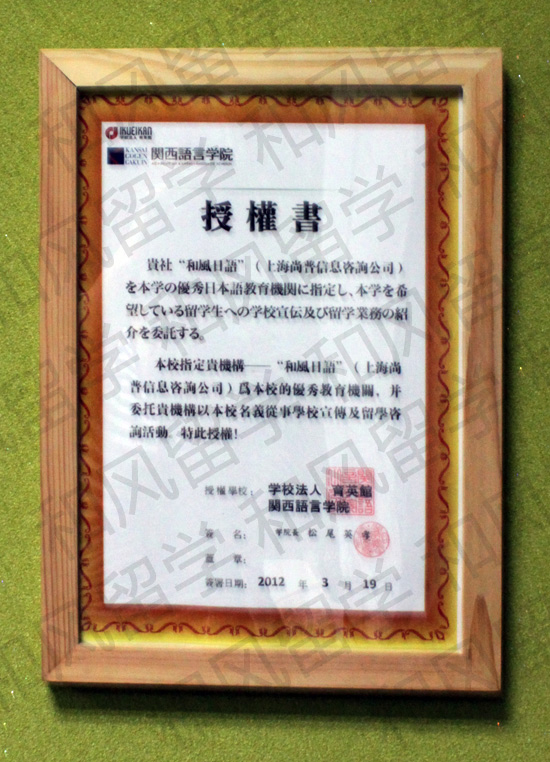 IKUEIKAN
学校法人 育英館
KANSAI
GOGEN
GAKUIN
関西語言学院
授權書
貴社“和風日語”（上海尚普信息咨詢公司）
を本学の優秀日本語教育機関に指定し、本学を希
望している留学生への学校宣伝及び留学業務の紹
介を委託する。
本校指定貴機構——“和風日語”（上海尚
普信息咨詢公司）爲本校的優秀教育機關，并
委托貴機構以本校名義從事學校宣傳及留學咨
詢活動。特此授權！
授權學校： 学校法人 育英館
関西語言学院
簽 名： 学院長 松尾英孝
蓋 章：
簽署日期： 2012 年 3 月 19 日
和风留学